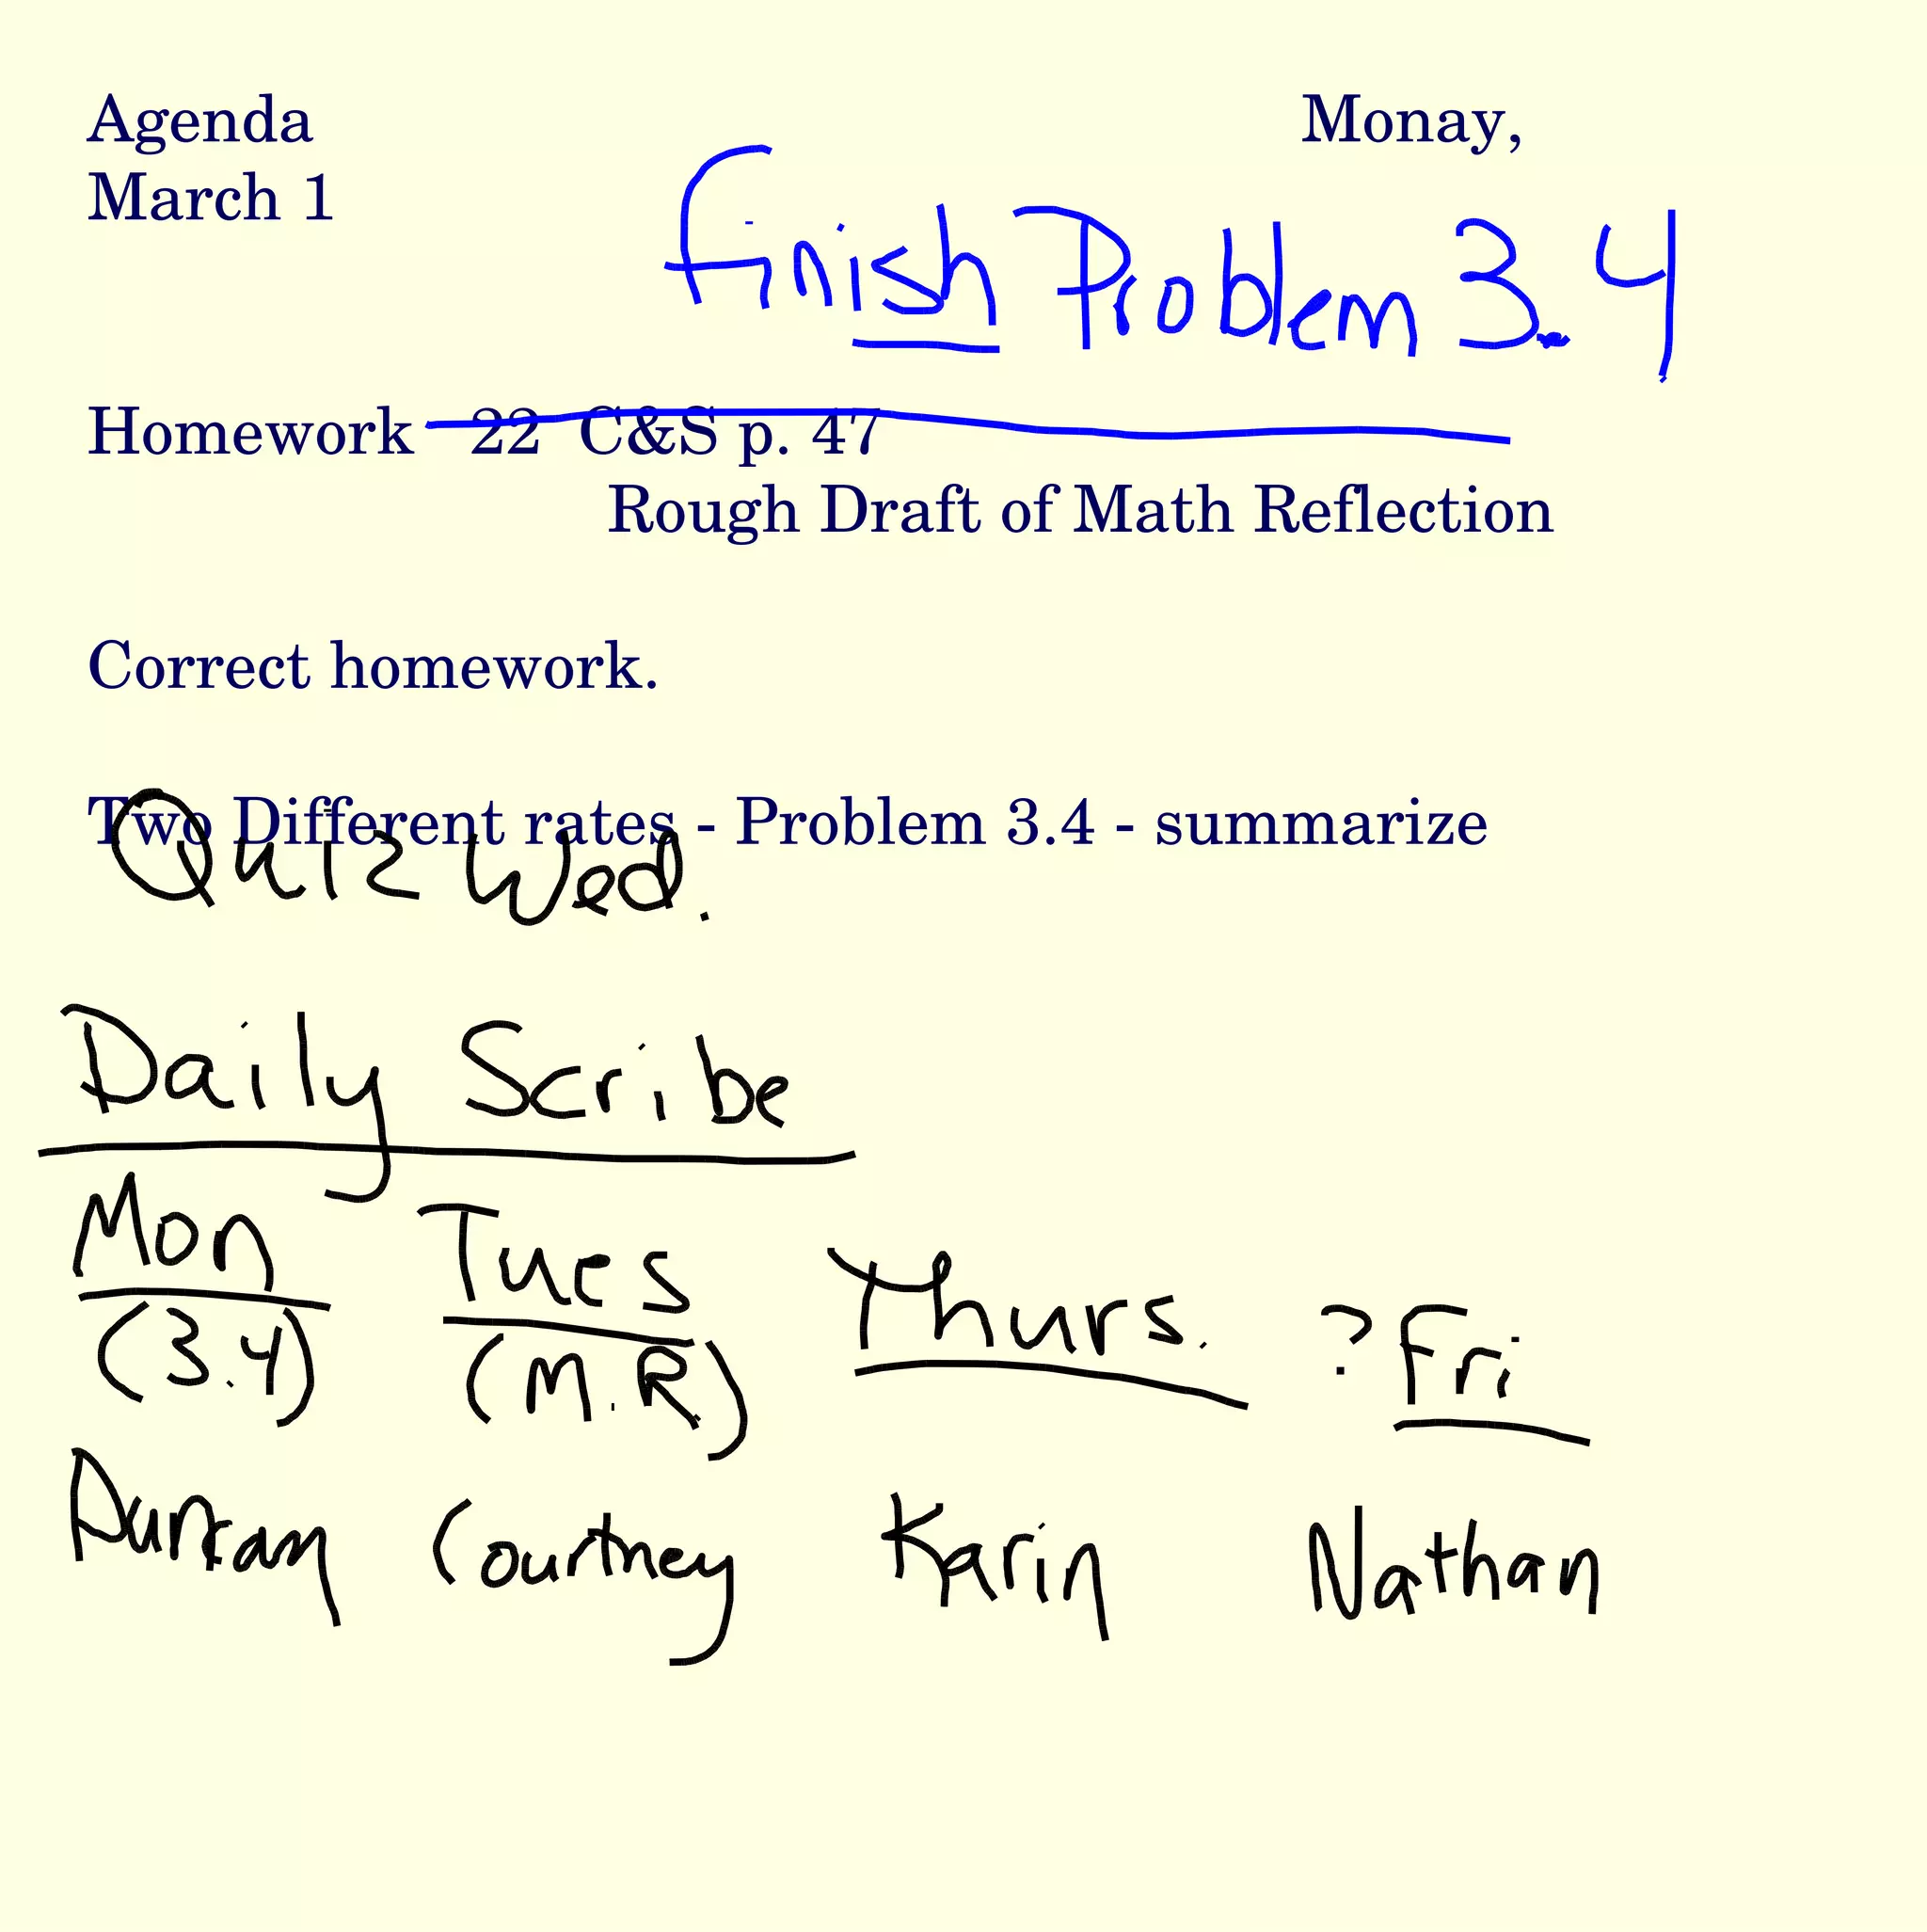 Agenda Monay,
March 1
Finish Problem 3.4
Homework 22 C&S p. 47
Rough Draft of Math Reflection
Correct homework.
Two Different rates - Problem 3.4 - summarize
Quiz Wed.
Daily Scribe
Mon Tues Thurs. ? Fri
(3.4) (M.R.)
Courtney Karin Nathan